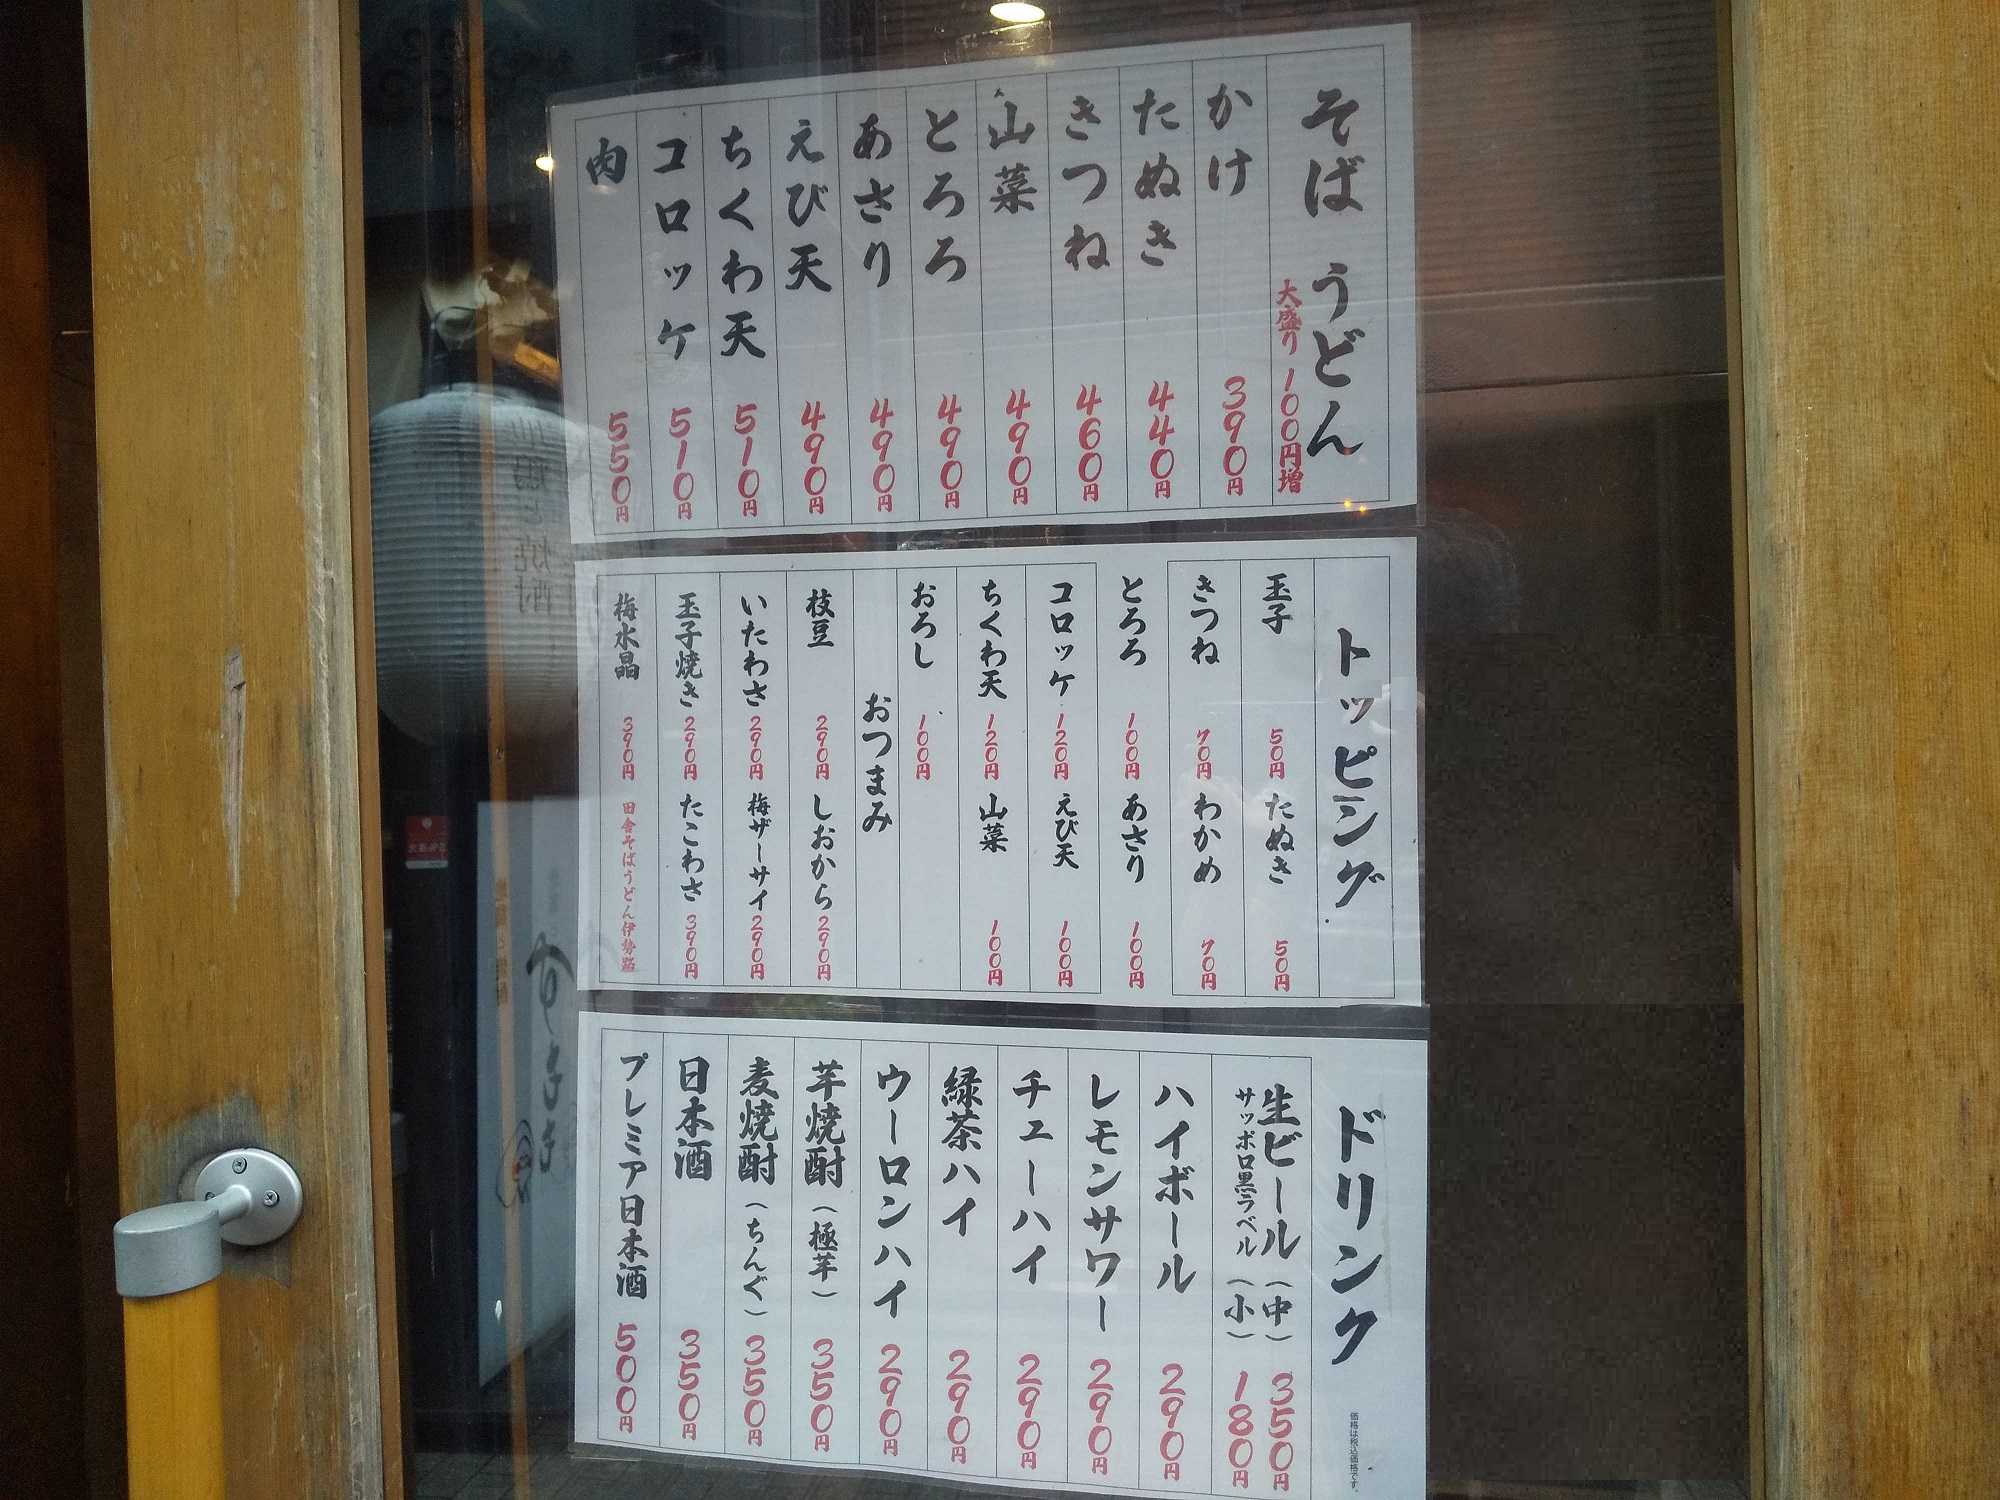 そば うどん
大盛り 100円増
かけ 390円
たぬき 440円
きつね 460円
山菜 490円
とろろ 490円
あさり 490円
えび天 490円
ちくわ天 510円
コロッケ 510円
肉 550円
トッピング
玉子 50円 たぬき 50円
きつね 70円 わかめ 70円
とろろ 100円 あさり 100円
コロッケ 120円 えび天 100円
ちくわ天 120円 山菜 100円
おろし 100円
おつまみ
枝豆 290円 しおから 290円
いたわさ 290円 梅ザーサイ 290円
玉子焼き 290円 たこわさ 390円
梅水晶 390円 田舎そばうどん伊勢路
ドリンク
価格は税込価格です。
生ビール(中) 350円
サッポロ黒ラベル(小) 180円
ハイボール 290円
レモンサワー 290円
チューハイ 290円
緑茶ハイ 290円
ウーロンハイ 290円
芋焼酎(極芋) 350円
麦焼酎(ちんぐ) 350円
日本酒 350円
プレミア日本酒 500円